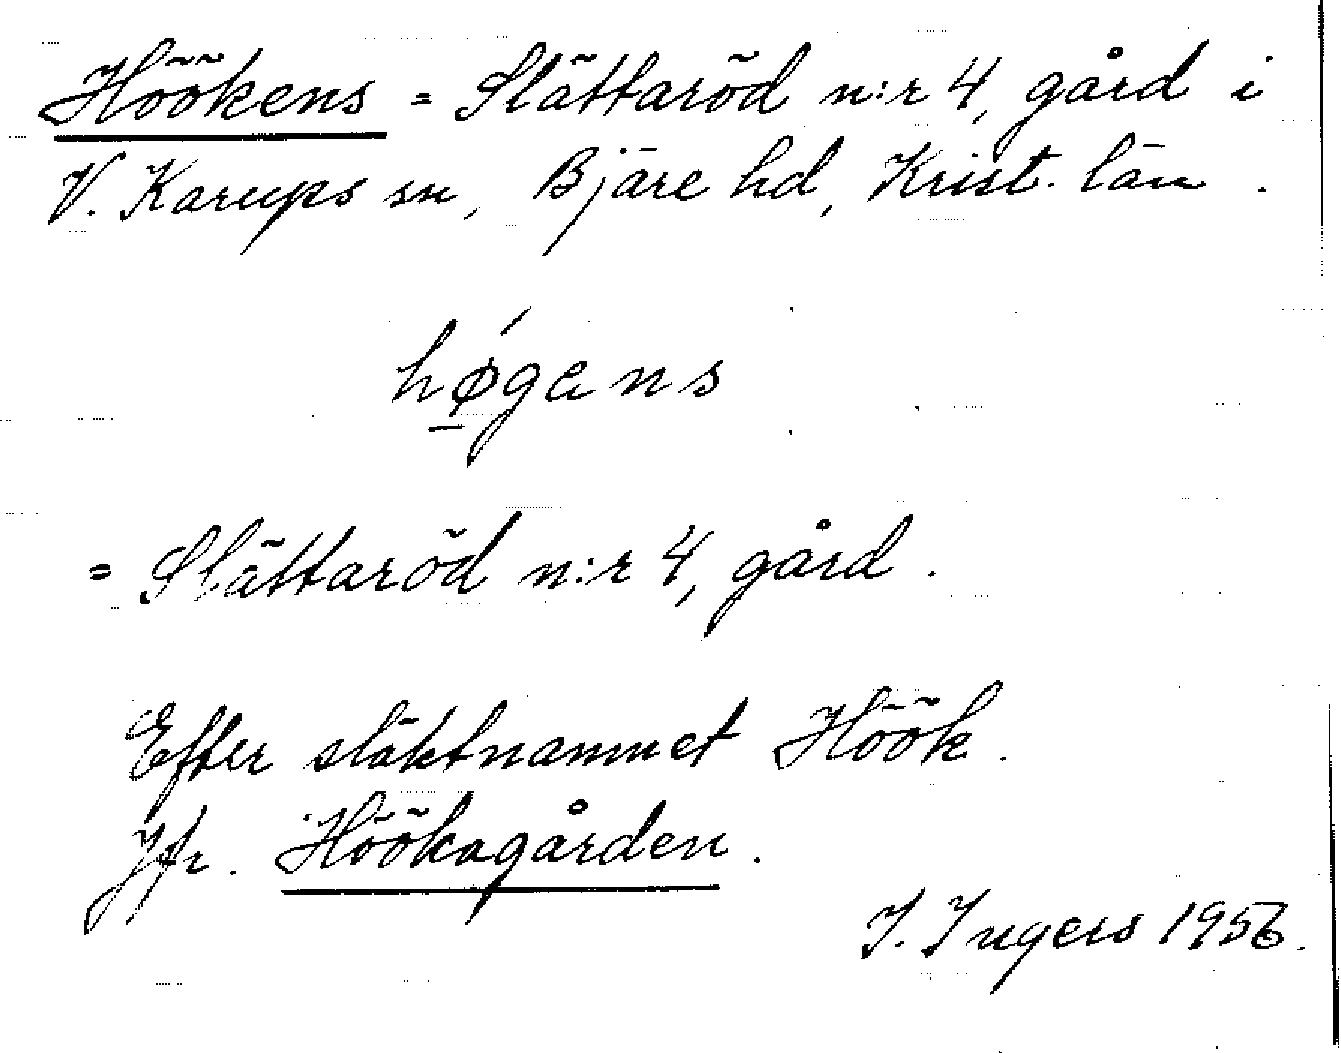 Höökens = Slättaröd n:r 4, gård i
V. Karups sn, Bjäre hd, Krist. län.
hǿ̱gens
= Slättaröd n:r 4, gård.
Efter släktnamnet Höök.
Jfr. Höökagården.
I. Ingers 1956.